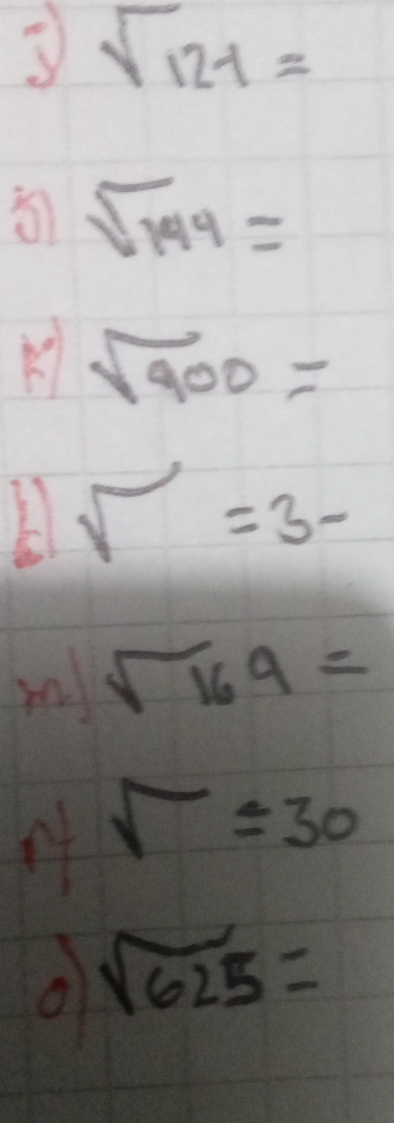 i) √121 =
j) √144 =
k) √900 =
l) √ = 3-
m) √169 =
n) √ = 30
o) √625 =